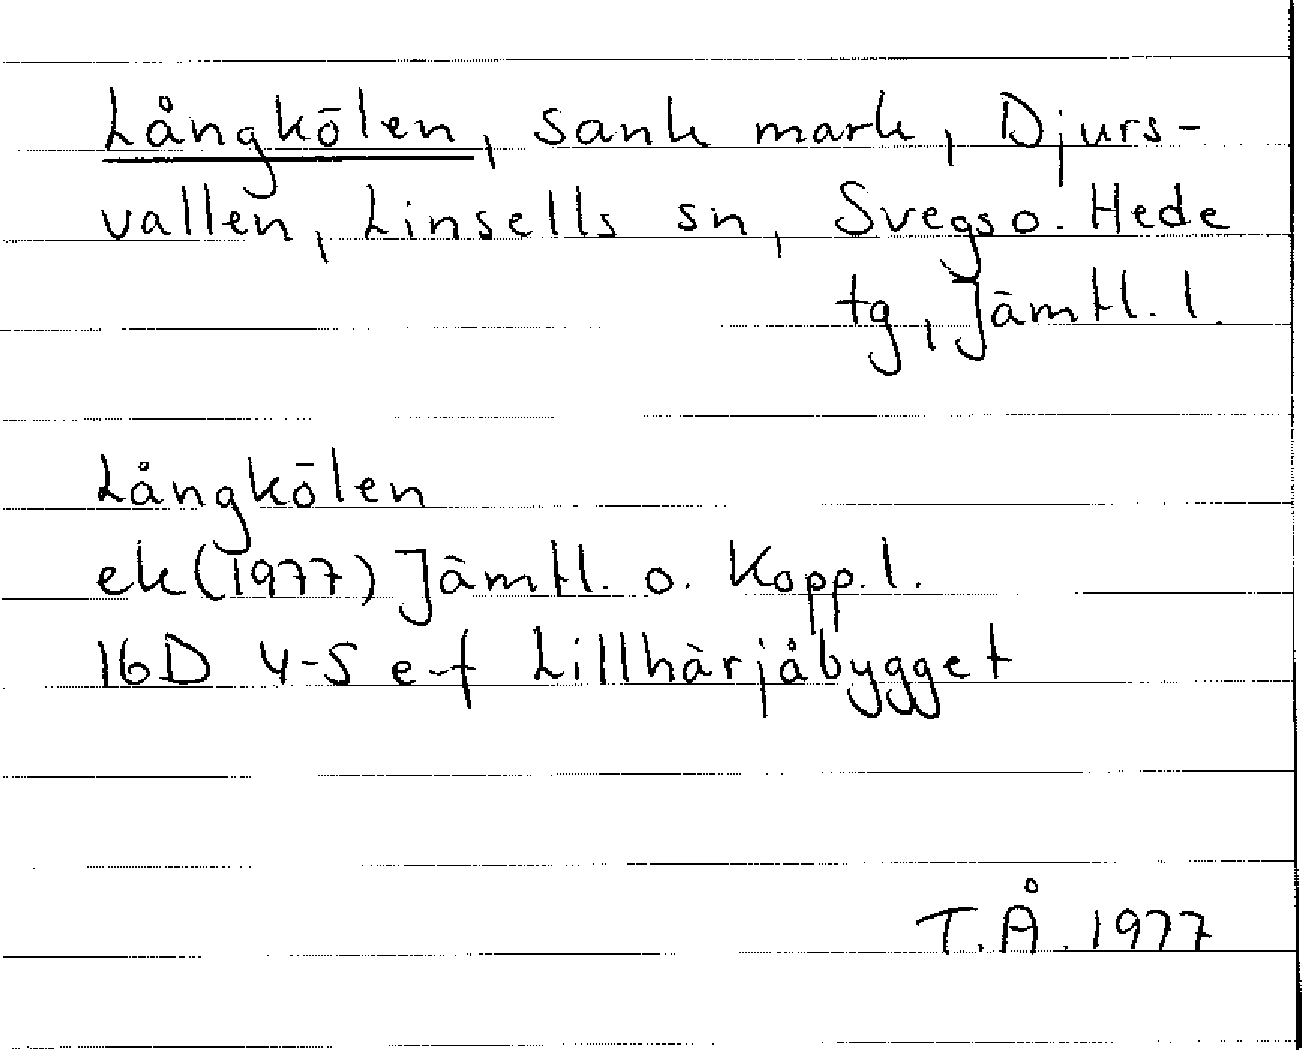 Långkölen, sank mark, Djurs-
vallen, Linsells sn, Svegs o. Hede
tg, Jämtl. l.
Långkölen
ek (1977) Jämtl. o. Kopp. l.
16D 4-5 e-f Lillhärjåbygget
T.Å. 1977